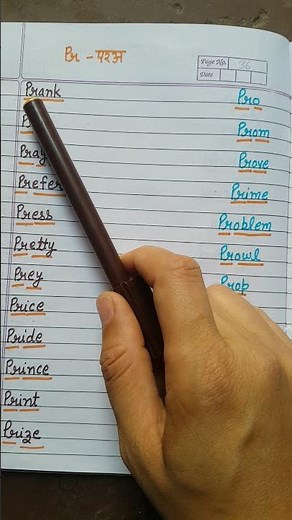 Pr - परअ
Page No. 36
Date
Prank
Pray
Prefer
Press
Pretty
Prey
Price
Pride
Prince
Print
Prize
Pro
Prom
Prove
Prime
Problem
Prowl
Prop